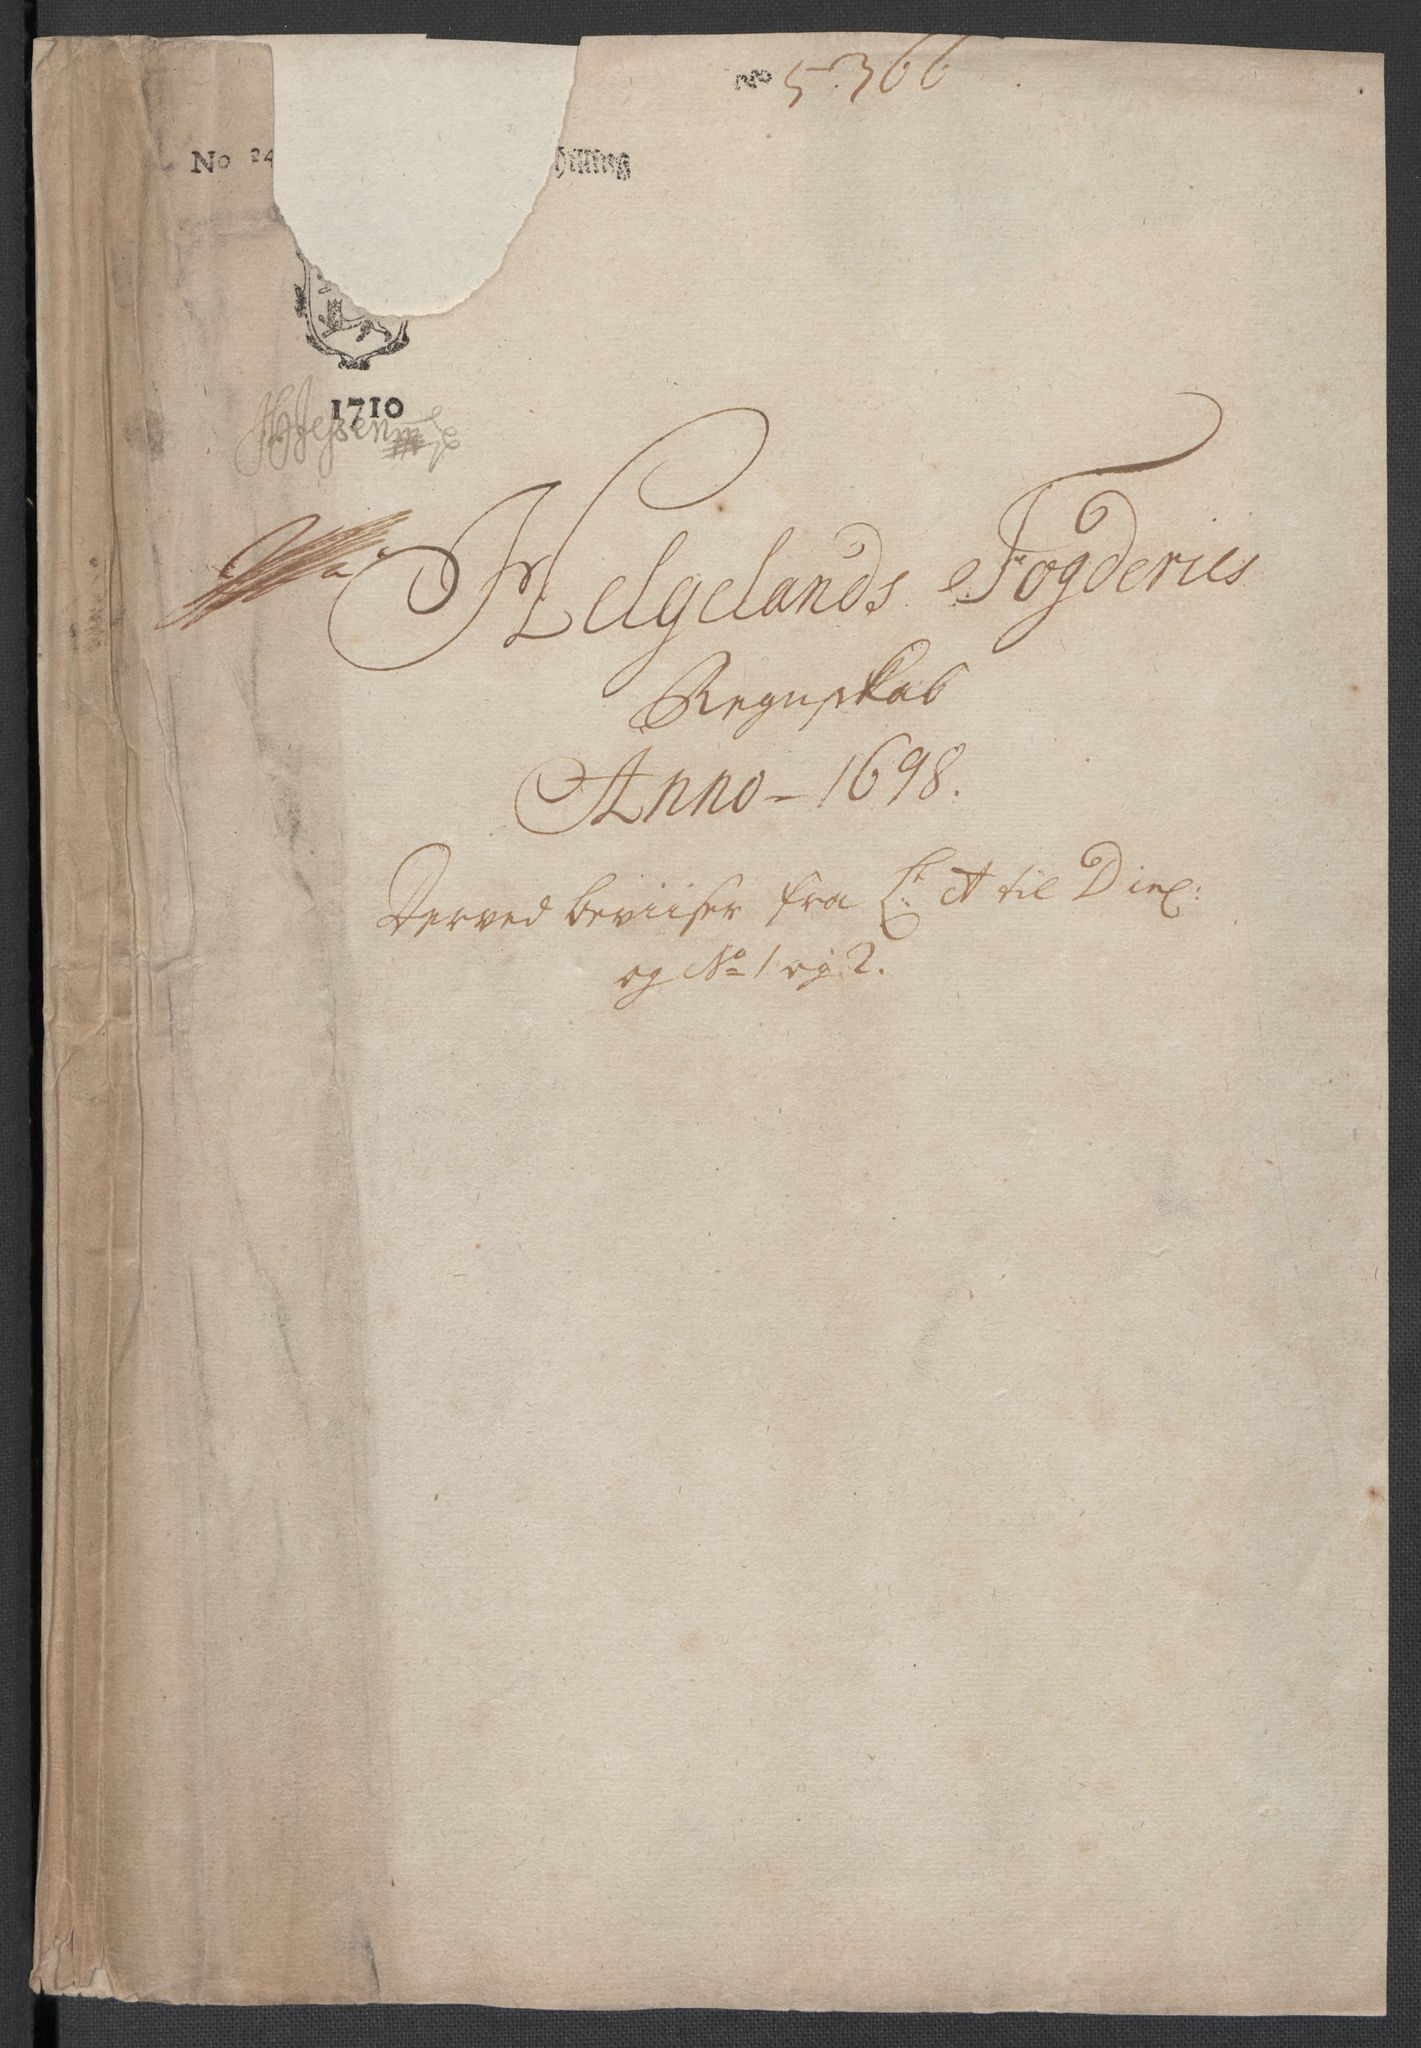 No 5366
No 24 hilling
1710
HJessen
Helgelands Fogderies
Regnskab
Anno - 1698.
Derved beviiser fra Lt: A til D incl:
og No 1 og 2.